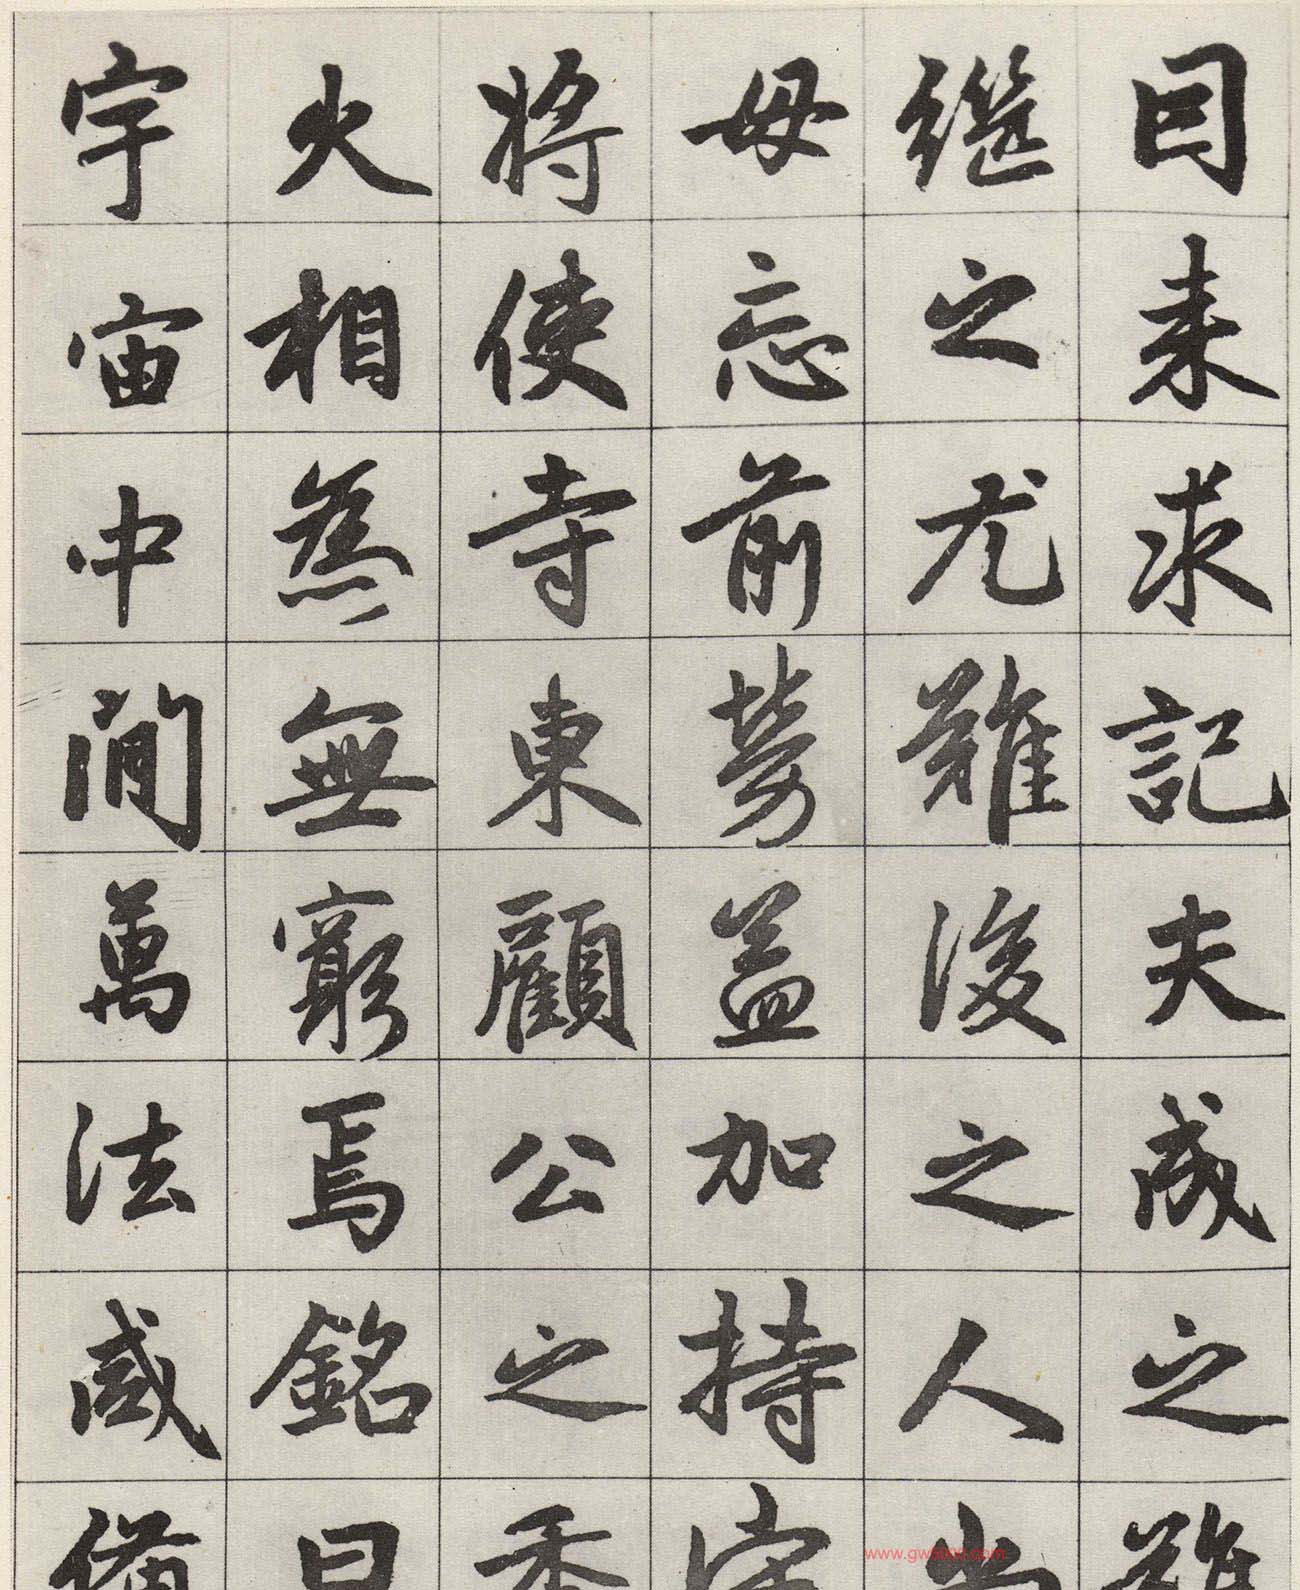 因来求記夫成之難
繼之尤難後之人尚
毋忘前勞益加持守
將使寺東顧公之香
火相為無窮焉銘曰
宇宙中間萬法咸備